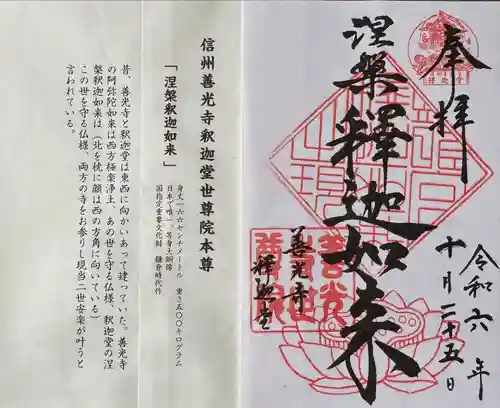 奉拝
涅槃釋迦如来
善光寺
釋迦堂
令和六年
十月二十五日
信州善光寺釈迦堂世尊院本尊
「涅槃釈迦如来」
身丈一六六センチメートル　重さ五〇〇キログラム
日本で唯一。等身大銅像
国指定重要文化財　鎌倉時代作
昔、善光寺と釈迦堂は東西に向かいあって建っていた。善光寺
の阿弥陀如来は西方極楽浄土、あの世を守る仏様、釈迦堂の涅
槃釈迦如来は（北を枕に顔は西の方角に向いている）
この世を守る仏様、両方の寺をお参りし現当二世安楽が叶うと
言われている。